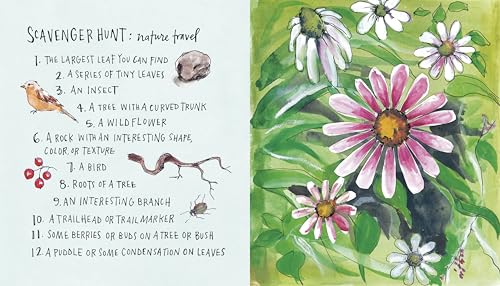 SCAVENGER HUNT: nature travel
1. THE LARGEST LEAF YOU CAN FIND
2. A SERIES OF TINY LEAVES
3. AN INSECT
4. A TREE WITH A CURVED TRUNK
5. A WILDFLOWER
6. A ROCK WITH AN INTERESTING SHAPE,
COLOR, OR TEXTURE
7. A BIRD
8. ROOTS OF A TREE
9. AN INTERESTING BRANCH
10. A TRAILHEAD OR TRAIL MARKER
11. SOME BERRIES OR BUDS ON A TREE OR BUSH
12. A PUDDLE OR SOME CONDENSATION ON LEAVES